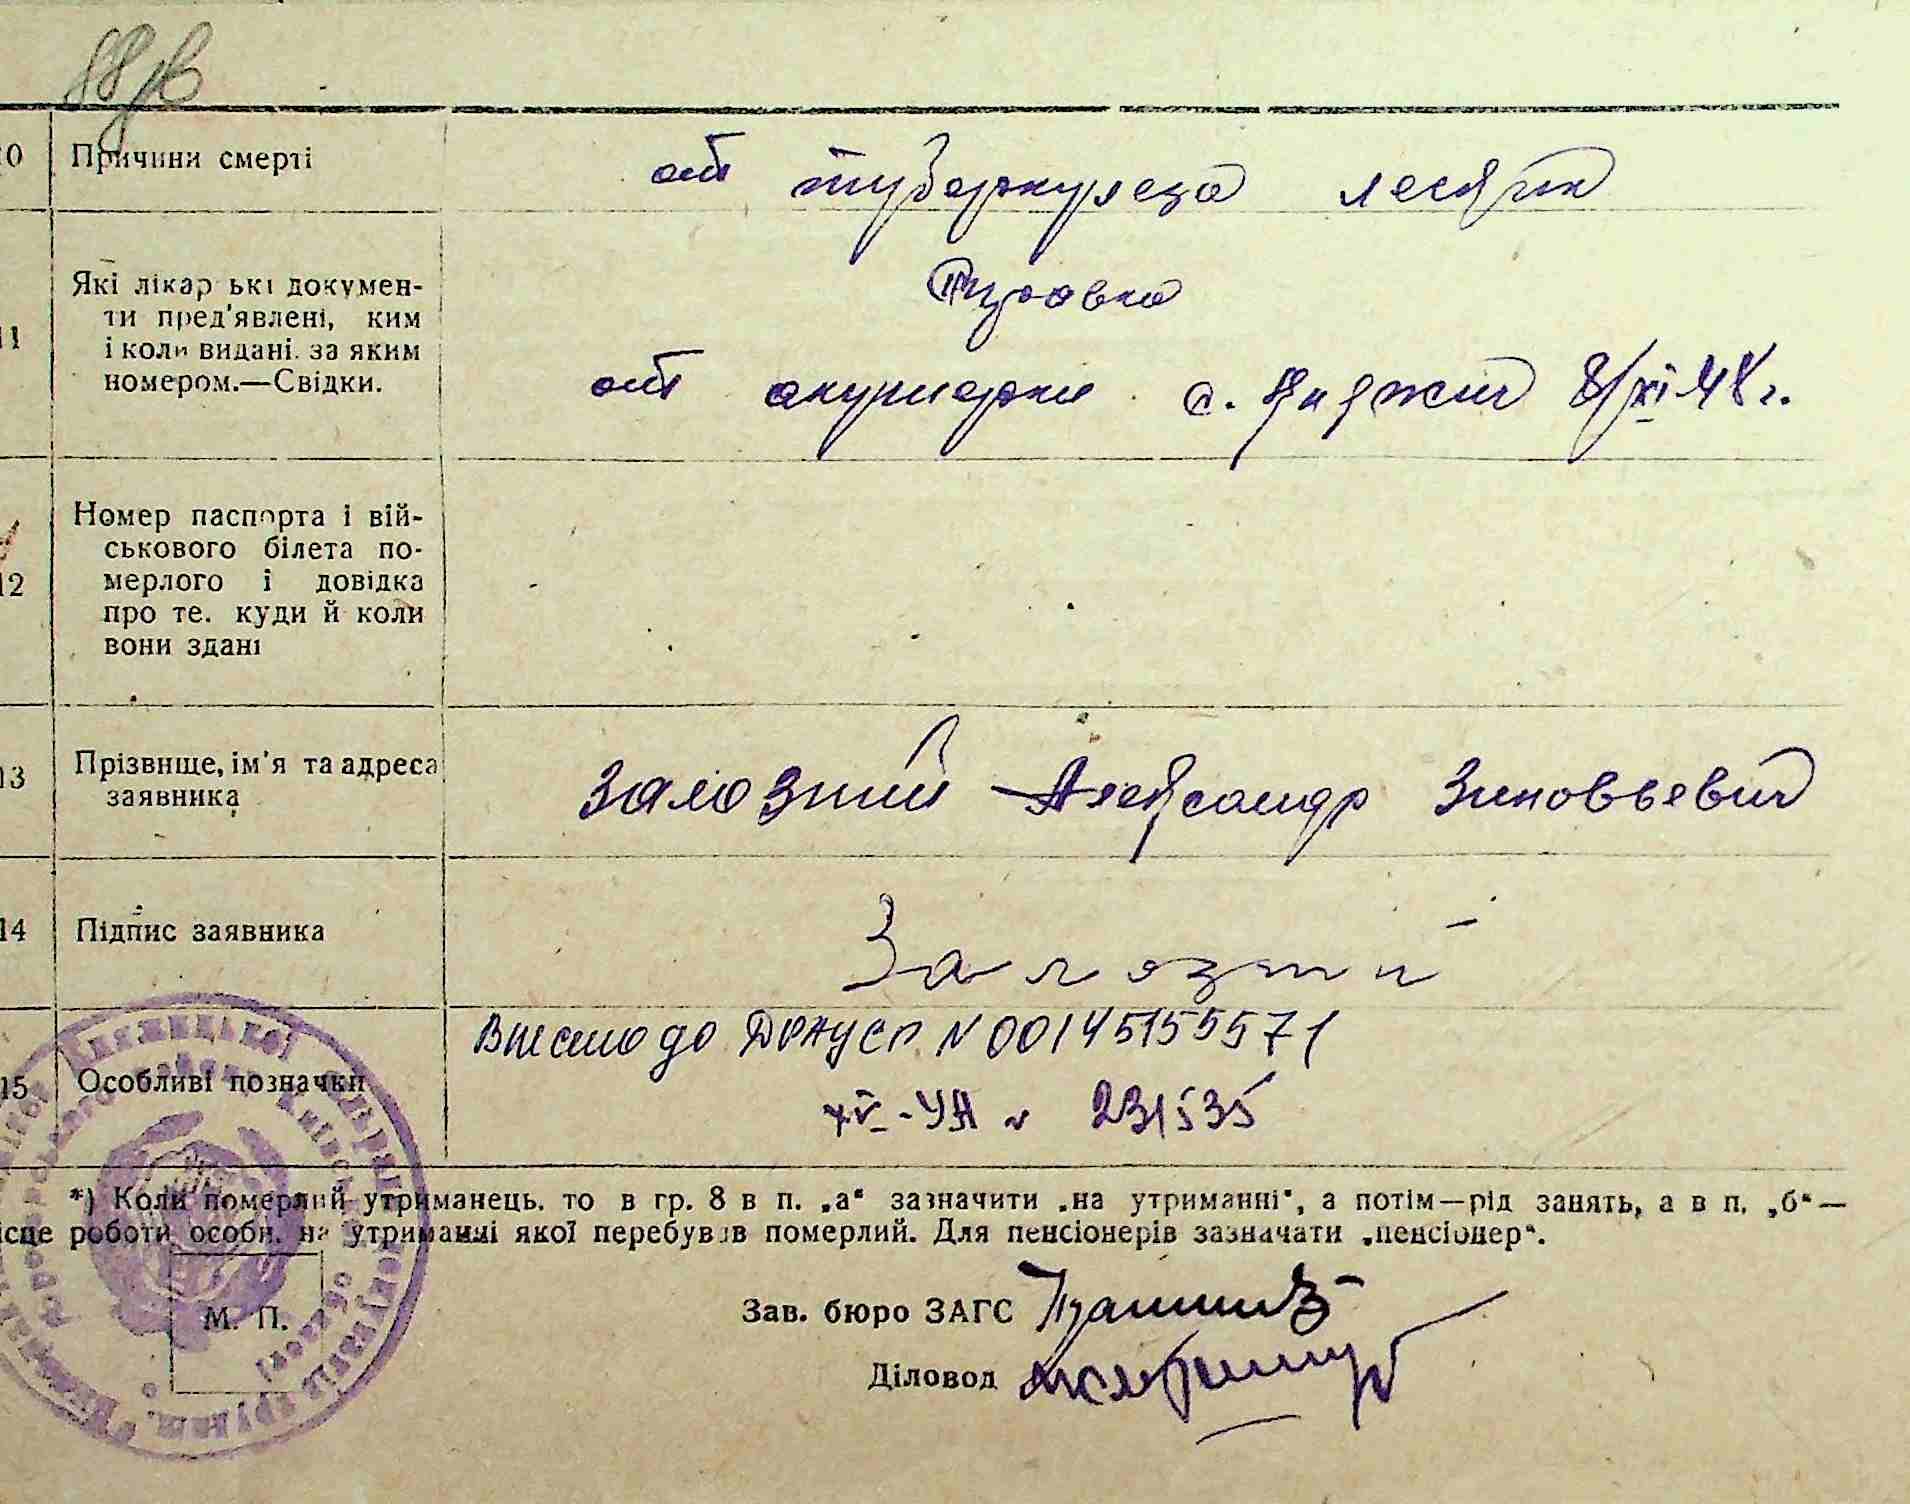 10 Причини смерті от туберкулеза легких
11 Які лікарські докумен-
ти пред'явлені, ким
і коли видані. за яким
номером.—Свідки.
Справка
от акушерки с. 8/XI 48 г.
12 Номер паспорта і вій-
ськового білета по-
мерлого і довідка
про те. куди й коли
вони здані
13 Прізвище, ім'я та адреса
заявника
Залозний Александр Зиновьевич
14 Підпис заявника Залозний
15 Особливі позначки
Внесено до ДРАЦСГ N 00145155571
-УА N 231535
*) Коли померлий утриманець. то в гр. 8 в п. „а“ зазначити „на утриманні“, а потім—рід занять, а в п. „б“—
місце роботи особи. на утриманні якої перебував померлий. Для пенсіонерів зазначати „пенсіонер“.
М. П.
Зав. бюро ЗАГС
Діловод